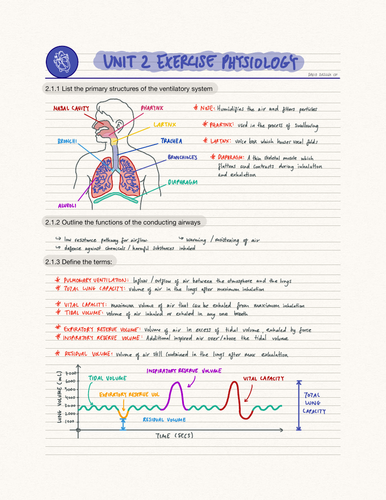 UNIT 2 EXERCISE PHYSIOLOGY
2.1.1 List the primary structures of the ventilatory system
NASAL CAVITY
PHARYNX
LARYNX
TRACHEA
BRONCHI
BRONCHIOLES
DIAPHRAGM
ALVEOLI
* NOSE: Humidifies the air and filters particles
* PHARYNX: Used in the process of swallowing
* LARYNX: Voice box which houses vocal folds
* DIAPHRAGM: A thin skeletal muscle which
flattens and contracts during inhalation
and exhalation
2.1.2 Outline the functions of the conducting airways
↳ low resistance pathway for airflow
↳ warming / moistening of air
↳ defense against chemicals / harmful substances inhaled
2.1.3 Define the terms:
* PULMONARY VENTILATION: Inflow / outflow of air between the atmosphere and the lungs
* TOTAL LUNG CAPACITY: Volume of air in the lungs after maximum inhalation
* VITAL CAPACITY: maximum volume of air that can be exhaled from maximum inhalation
* TIDAL VOLUME: Volume of air inhaled or exhaled in any one breath
* EXPIRATORY RESERVE VOLUME: Volume of air in excess of tidal volume, exhaled by force
* INSPIRATORY RESERVE VOLUME: Additional inspired air over/above the tidal volume
* RESIDUAL VOLUME: Volume of air still contained in the lungs after max exhalation
LUNG VOLUME (mL)
TIDAL VOLUME
INSPIRATORY RESERVE VOLUME
VITAL CAPACITY
EXPIRATORY RESERVE VOL
RESIDUAL VOLUME
TOTAL
LUNG
CAPACITY
TIME (SECS)